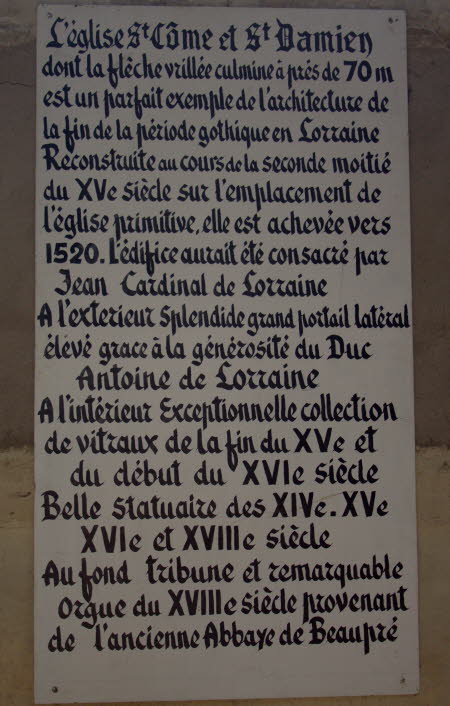 L'église St Côme et St Damien
dont la flèche vrillée culmine à près de 70 m
est un parfait exemple de l'architecture de
la fin de la période gothique en Lorraine
Reconstruite au cours de la seconde moitié
du XVe siècle sur l'emplacement de
l'église primitive, elle est achevée vers
1520. L'édifice aurait été consacré par
Jean Cardinal de Lorraine
A l'exterieur Splendide grand portail latéral
élévé grace à la générosité du Duc
Antoine de Lorraine
A l'intérieur Exceptionnelle collection
de vitraux de la fin du XVe et
du début du XVIe siècle
Belle statuaire des XIVe. XVe
XVIe et XVIIIe siècle
Au fond tribune et remarquable
orgue du XVIIIe siècle provenant
de l'ancienne Abbaye de Beaupré